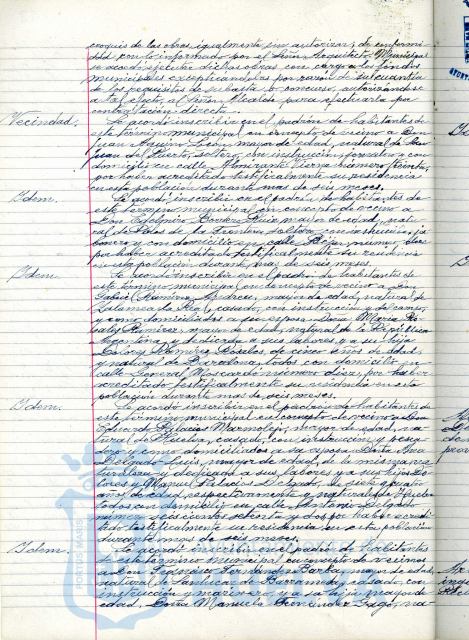 croquis de las obras, igualmente, sin autorizar; de conformi-
dad con lo informado por el Señor Arquitecto Municipal
se acordó ejecutar dichas obras con cargo a los fondos
municipales exceptuándolas por razón de su cuantía
de los requisitos de subasta o concurso, autorizándose
a tal efecto, al Señor Alcalde para efectuarla por
contratación directa.
Vecindad. Se acordó inscribir en el padrón de habitantes de
este término municipal en concepto de vecino a Don
Juan mayor de edad, natural de San
Juan del Puerto, soltero, con instrucción, y con
domicilio en calle Almirante número treinta,
por haber acreditado testificalmente su residencia
en esta población durante más de seis meses.
Idem. Se acordó inscribir en el padrón de habitantes de
este término municipal en concepto de vecino a
Don mayor de edad, natu-
ral de Palos de la Frontera, soltero, con instrucción,
y con domicilio en calle Rija, número
por haber acreditado testificalmente su residencia
en esta población durante más de seis meses.
Idem. Se acordó inscribir en el padrón de habitantes de
este término municipal en concepto de vecino a Don
Gabriel Ramírez Andreu, mayor de edad, natural de
Salamanca la Real, casado, con instrucción y del campo,
y como domiciliados a su esposa Doña María
Ramírez, mayor de edad, natural de la República
Argentina, y dedicada a sus labores, y a su hija
Ramírez de cinco años de edad
y natural de Barcelona, todos con domicilio en
calle General Moscardó número diez, por haber
acreditado testificalmente su residencia en esta
población durante más de seis meses.
Idem. Se acordó inscribir en el padrón de habitantes de
este término municipal en concepto de vecino a Don
Eduardo Palacios Marmolejo, mayor de edad, na-
tural de Huelva, casado, con instrucción y pesca-
dor y como domiciliados a su esposa Doña Ana
Delgado mayor de edad, de la misma na-
turaleza y dedicada a sus labores, y a sus hijos Do-
lores y Manuel Palacios Delgado, de siete y cuatro
años de edad, respectivamente y naturales de Huelva
todos con domicilio en calle Antonio Delgado
número por haber acredi-
tado testificalmente su residencia en esta población
durante más de seis meses.
Idem. Se acordó inscribir en el padrón de habitantes
de este término municipal en concepto de vecinos
a Don Francisco Fernández mayor de edad,
natural de Sanlúcar de Barrameda, casado, con
instrucción y marinero, y a su hija, mayor de
edad, Doña Manuela Fernández na-
PORTUS MARIS